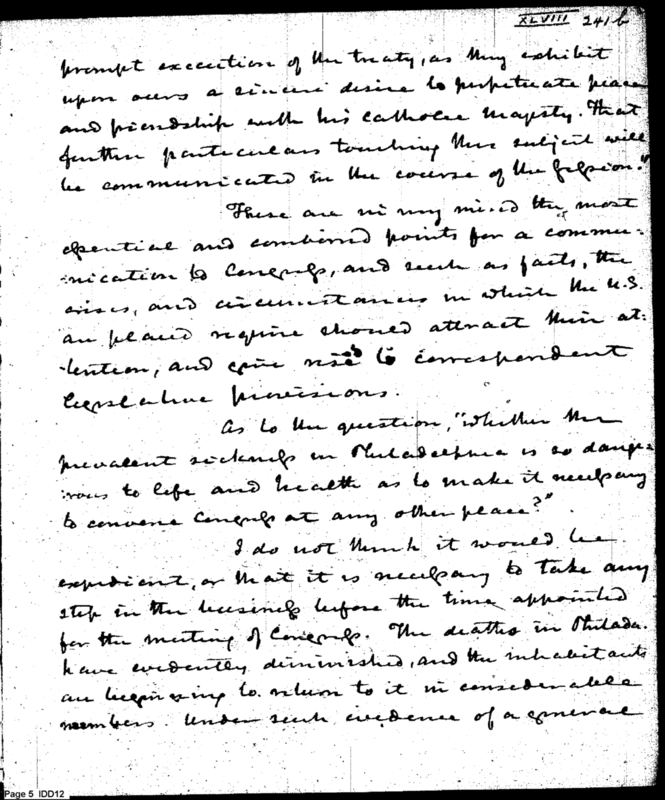 XLVIII 241b
prompt execution of the treaty, as they exhibit
upon ours a sincere desire to perpetuate peace
and friendship with his Catholic Majesty. That
further particulars touching this subject will
be communicated in the course of the Session."
These are in my mind the most
essential and combined points for a commu-
-nication to Congress, and such as facts, the
crises, and circumstances in which the U.S.
are placed require should attract their at-
-tention, and give rise to correspondent
legislative provisions.
As to the question, "whether the
prevalent sickness in Philadelphia is so dange-
-rous to life and health as to make it necessary
to convene Congress at any other place?"
I do not think it would be
expedient, or that it is necessary to take any
step in the business before the time appointed
for the meeting of Congress. The deaths in Philada.
have evidently diminished, and the inhabitants
are beginning to return to it in considerable
numbers. Under such evidence of a general
Page 5 IDD12